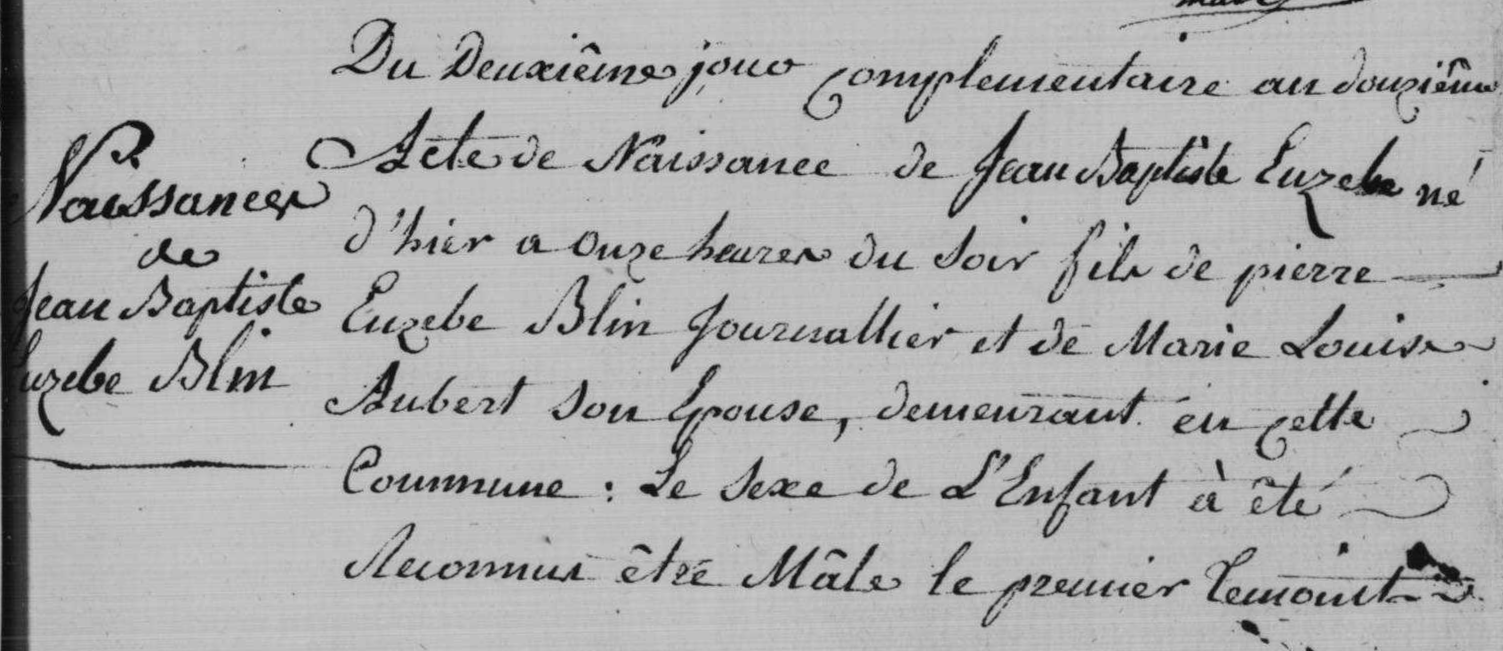 Naissances
de
Jean Baptiste
Euzebe Blin
Du Deuxiême jour complementaire an douziême
Acte de Naissance de Jean Baptiste Euzebe né
d'hier a onze heures du soir fils de pierre
Euzebe Blin Journallier et de Marie Louise
Aubert son Epouse, demeurant en cette
Commune : Le sexe de L'Enfant à êté
Reconnus être Mâle le premier Temoint